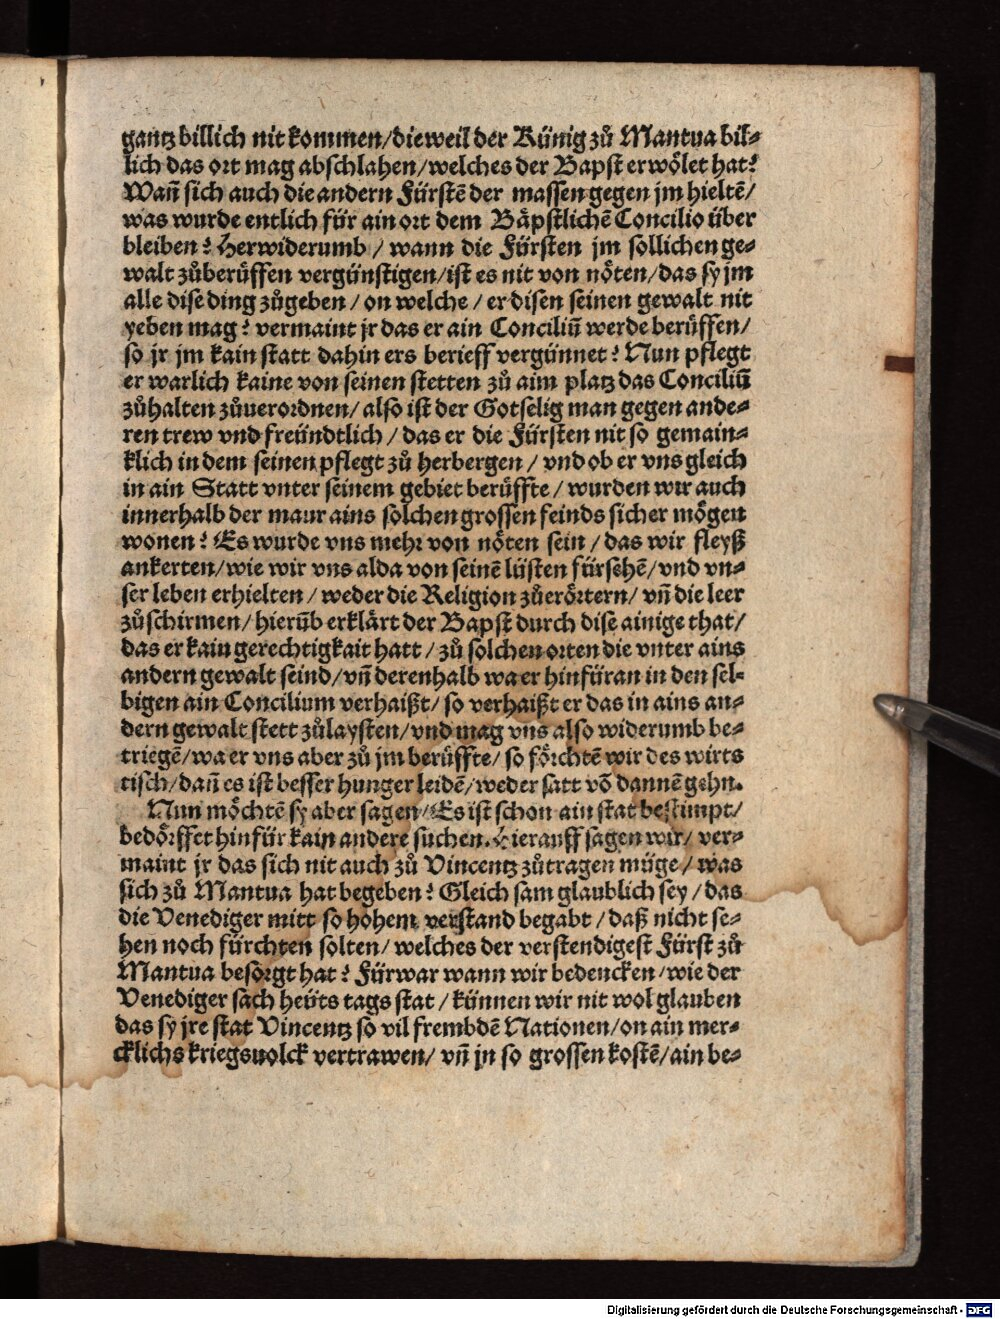 gantz billich nit kommen/ dieweil der Künig zů Mantua bil⸗
lich das ort mag abschlahen/ welches der Bapst erwölet hat?
Wañ sich auch die andern Fürstē der massen gegen jm hieltē/
was wurde entlich für ain ort dem Bäpstlichē Concilio über
bleiben? Herwiderumb / wann die Fürsten jm söllichen ge⸗
walt zůberüffen vergünstigen/ ist es nit von nöten/ das sy jm
alle dise ding zůgeben / on welche / er disen seinen gewalt nit
yeben mag? vermaint jr das er ain Conciliū werde berüffen/
so jr jm kain statt dahin ers berieff vergünnet? Nun pflegt
er warlich kaine von seinen stetten zů aim platz das Conciliū
zůhalten zůuerordnen/ also ist der Gotselig man gegen ande⸗
ren trew vnd freündtlich / das er die Fürsten nit so gemain⸗
klich in dem seinen pflegt zů herbergen / vnd ob er vns gleich
in ain Statt vnter seinem gebiet berüffte / wurden wir auch
innerhalb der maur ains solchen grossen feinds sicher mögen
wonen? Es wurde vns mehr von nöten sein / das wir fleyß
ankerten/ wie wir vns alda von seinē lüsten fürsehē/ vnd vn⸗
ser leben erhielten / weder die Religion zůerörtern/ vñ die leer
zůschirmen/ hierūb erklärt der Bapst durch dise ainige that/
das er kain gerechtigkait hatt / zů solchen orten die vnter ains
andern gewalt seind/ vñ derenhalb wa er hinfüran in den sel⸗
bigen ain Concilium verhaißt/ so verhaißt er das in ains an⸗
dern gewalt stett zůlaysten/ vnd mag vns also widerumb be⸗
triegē/ wa er vns aber zů jm berüffte/ so förchtē wir des wirts
tisch/ dañ es ist besser hunger leidē/ weder satt vō dannē gehn.
Nun möchtē sy aber sagen/ Es ist schon ain stat bestimpt/
bedörffet hinfür kain andere suchen. Hierauff sagen wir/ ver⸗
maint jr das sich nit auch zů Vincentz zůtragen müge/ was
sich zů Mantua hat begeben? Gleich sam glaublich sey / das
die Venediger mitt so hohem verstand begabt / daß nicht se⸗
hen noch fürchten solten/ welches der verstendigest Fürst zů
Mantua besorgt hat? Fürwar wann wir bedencken/ wie der
Venediger sach heüts tags stat / künnen wir nit wol glauben
das sy jre stat Vincentz so vil frembdē Nationen/ on ain mer⸗
cklichs kriegsuolck vertrawen/ vñ jn so grossen kostē/ ain be⸗
Digitalisierung gefördert durch die Deutsche Forschungsgemeinschaft - DFG